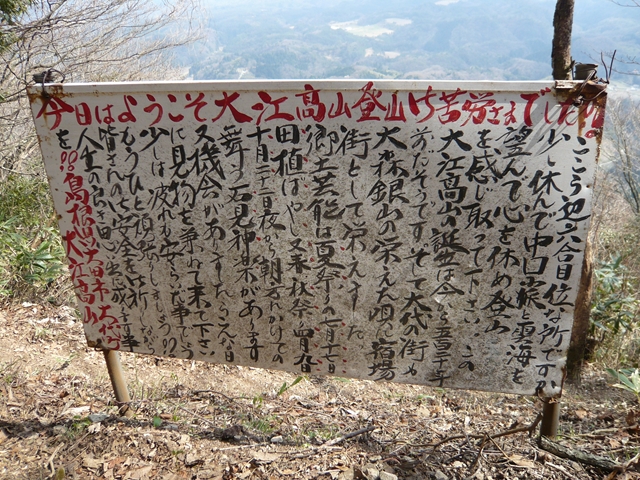 今日はようこそ大江高山登山ご苦労さまでした。
ここら辺六合目位な所ですか
少し休んで中国山脈と雲海を
望んで心を休め登山
を感じ取って下さい この
大江高山の誕生は今から五百三十年
前だそうです そして大代の街も
大森銀山の栄えた頃に宿場
街として栄えました
郷土芸能は夏祭りの七月七日
田植ばやし 又 秋祭 曽沓
十月二十一日夜から朝方にかけての
舞う石見神楽があります
又機会がありましたらへ入日
に見物を兼ねて来て下さい
少しは疲れも安らいだ事でしょう
もうひと頑張り
皆さんのご安全をお祈りしながら
人生の良き思い出に成ります事
を!!
島根県大田市大代町
大江高山